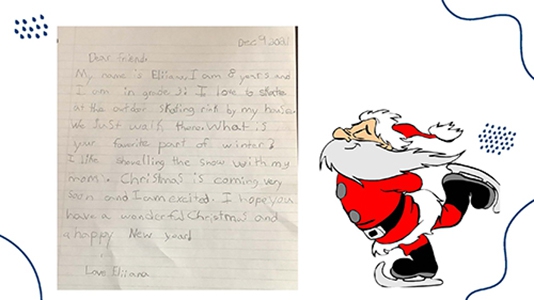 Dec 9 2021
Dear friend,
My name is Eliiana I am 8 years and
I am in grade 3. I love to skate
at the outdor skating rink by my house.
We just walk there. What is
your favorite part of winter?
I like shovelling the snow with my
mom. Christmas is coming very
soon and I am excited. I hope you
have a wonderful Christmas and
a happy New year!
Love Eliiana